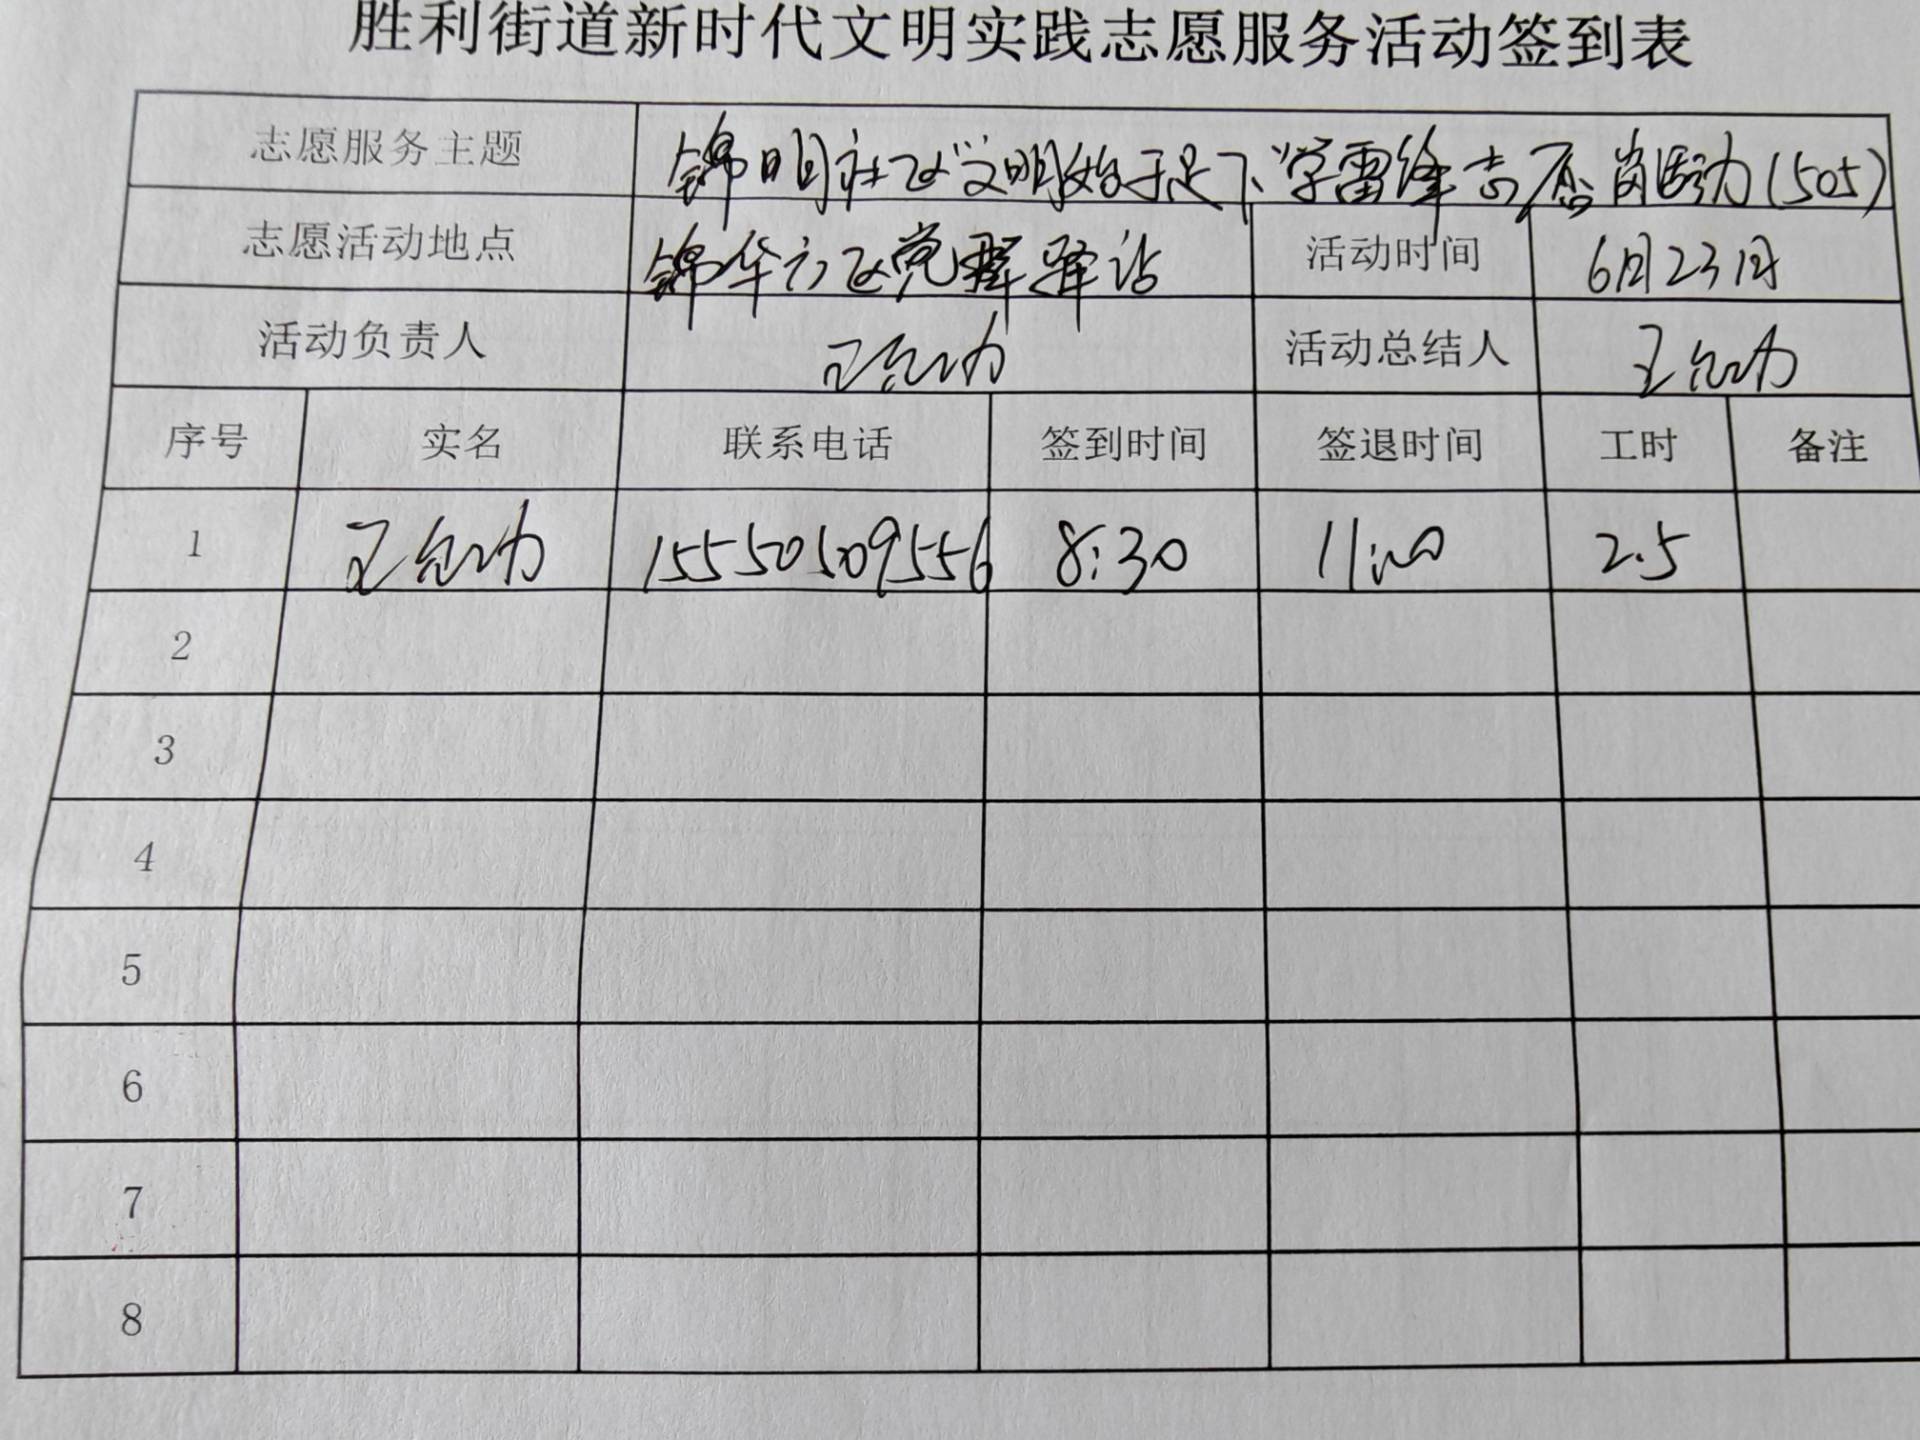 胜利街道新时代文明实践志愿服务活动签到表
志愿服务主题 锦明社区"文明始于足下"学雷锋志愿 活动(505)
志愿活动地点 锦华六区党群驿站 活动时间 6月23日
活动负责人 王 活动总结人 王
序号 实名 联系电话 签到时间 签退时间 工时 备注
1 王 15550509556 8:30 11:00 2.5
2
3
4
5
6
7
8